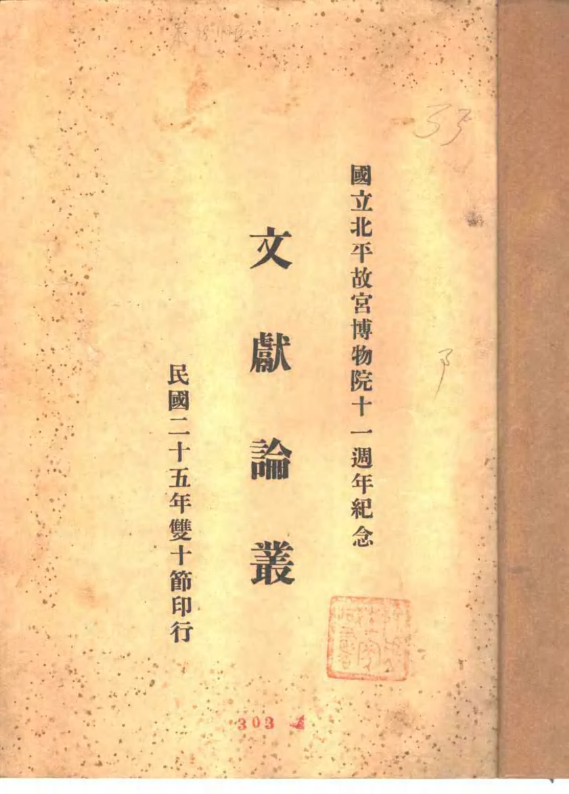 國立北平故宮博物院十一週年紀念
文獻論叢
民國二十五年雙十節印行
303